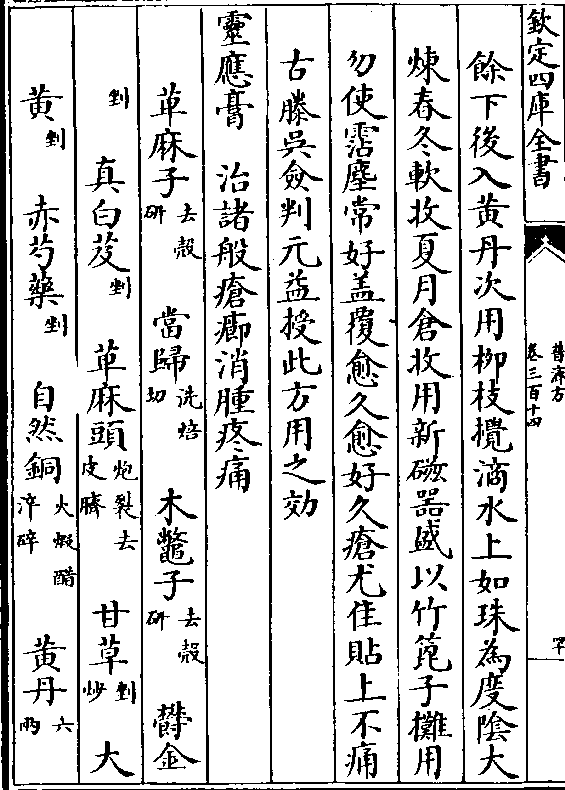 欽定四庫全書
普濟方
卷三百十四
罕
餘下後入黄丹次用柳枝攪滴水上如珠為度隂大
煉春冬軟收夏月倉收用新磁器盛以竹箆子攤用
勿使霑塵常好盖覆愈久愈好久瘡尤佳貼上不痛
古滕吳僉判元益授此方用之効
靈應膏　治諸般瘡癤消腫疼痛
萆麻子去殻研　當歸洗焙切　木鼈子去殻研　欝金
剉　真白芨剉　萆麻頭炮裂去皮臍　甘草剉炒　大
黄剉　赤芍藥剉　自然銅火煅醋淬碎　黄丹六兩